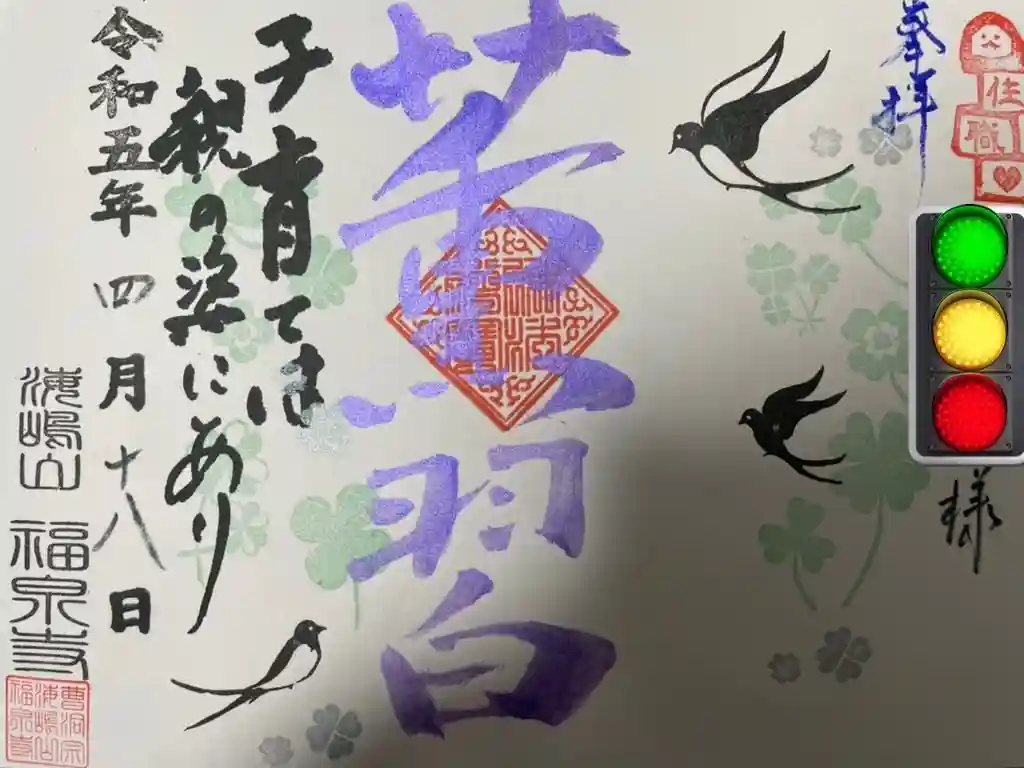 奉拝
住
職
様
薫習
子育ては
親の姿にあり
令和五年 四月十八日
海嶋山
福泉寺
曹洞宗
海嶋山
福泉寺